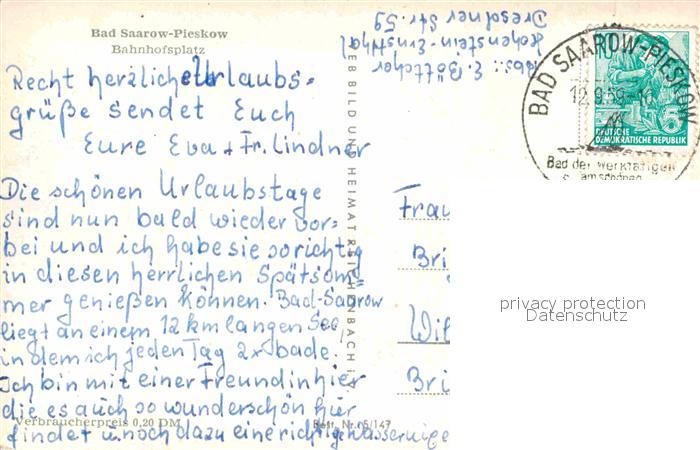 Bad Saarow-Pieskow
Bahnhofsplatz
Recht herzliche Urlaubs=
grüße sendet Euch
Eure Eva + Fr. Lindner
Die schönen Urlaubstage
sind nun bald wieder vor=
bei und ich habe sie so richtig
in diesen herrlichen Spätsom=
mer genießen können. Bad-Saarow
liegt an einem 12 km langen See,
in dem ich jeden Tag 2x bade.
Ich bin mit einer Freundin hier
die es auch so wunderschön hier
findet u. noch dazu eine richtige Wasser
Verbraucherpreis 0,20 DM
Best. Nr. 15/147
VEB BILD UND HEIMAT REICHENBACH i
Abs.: E. Böttcher
Hohenstein-Ernstthal
Dresdner Str. 59
BAD SAAROW-PIESKOW
12.9.59
Bad der Werktätigen
am schönen
DEUTSCHE
DEMOKRATISCHE REPUBLIK
5
Frau
Bri
Wil
Bri
privacy protection
Datenschutz